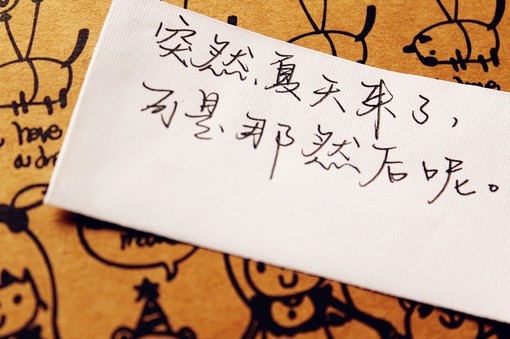 突然，夏天来了，
可是那然后呢。
have
a dre